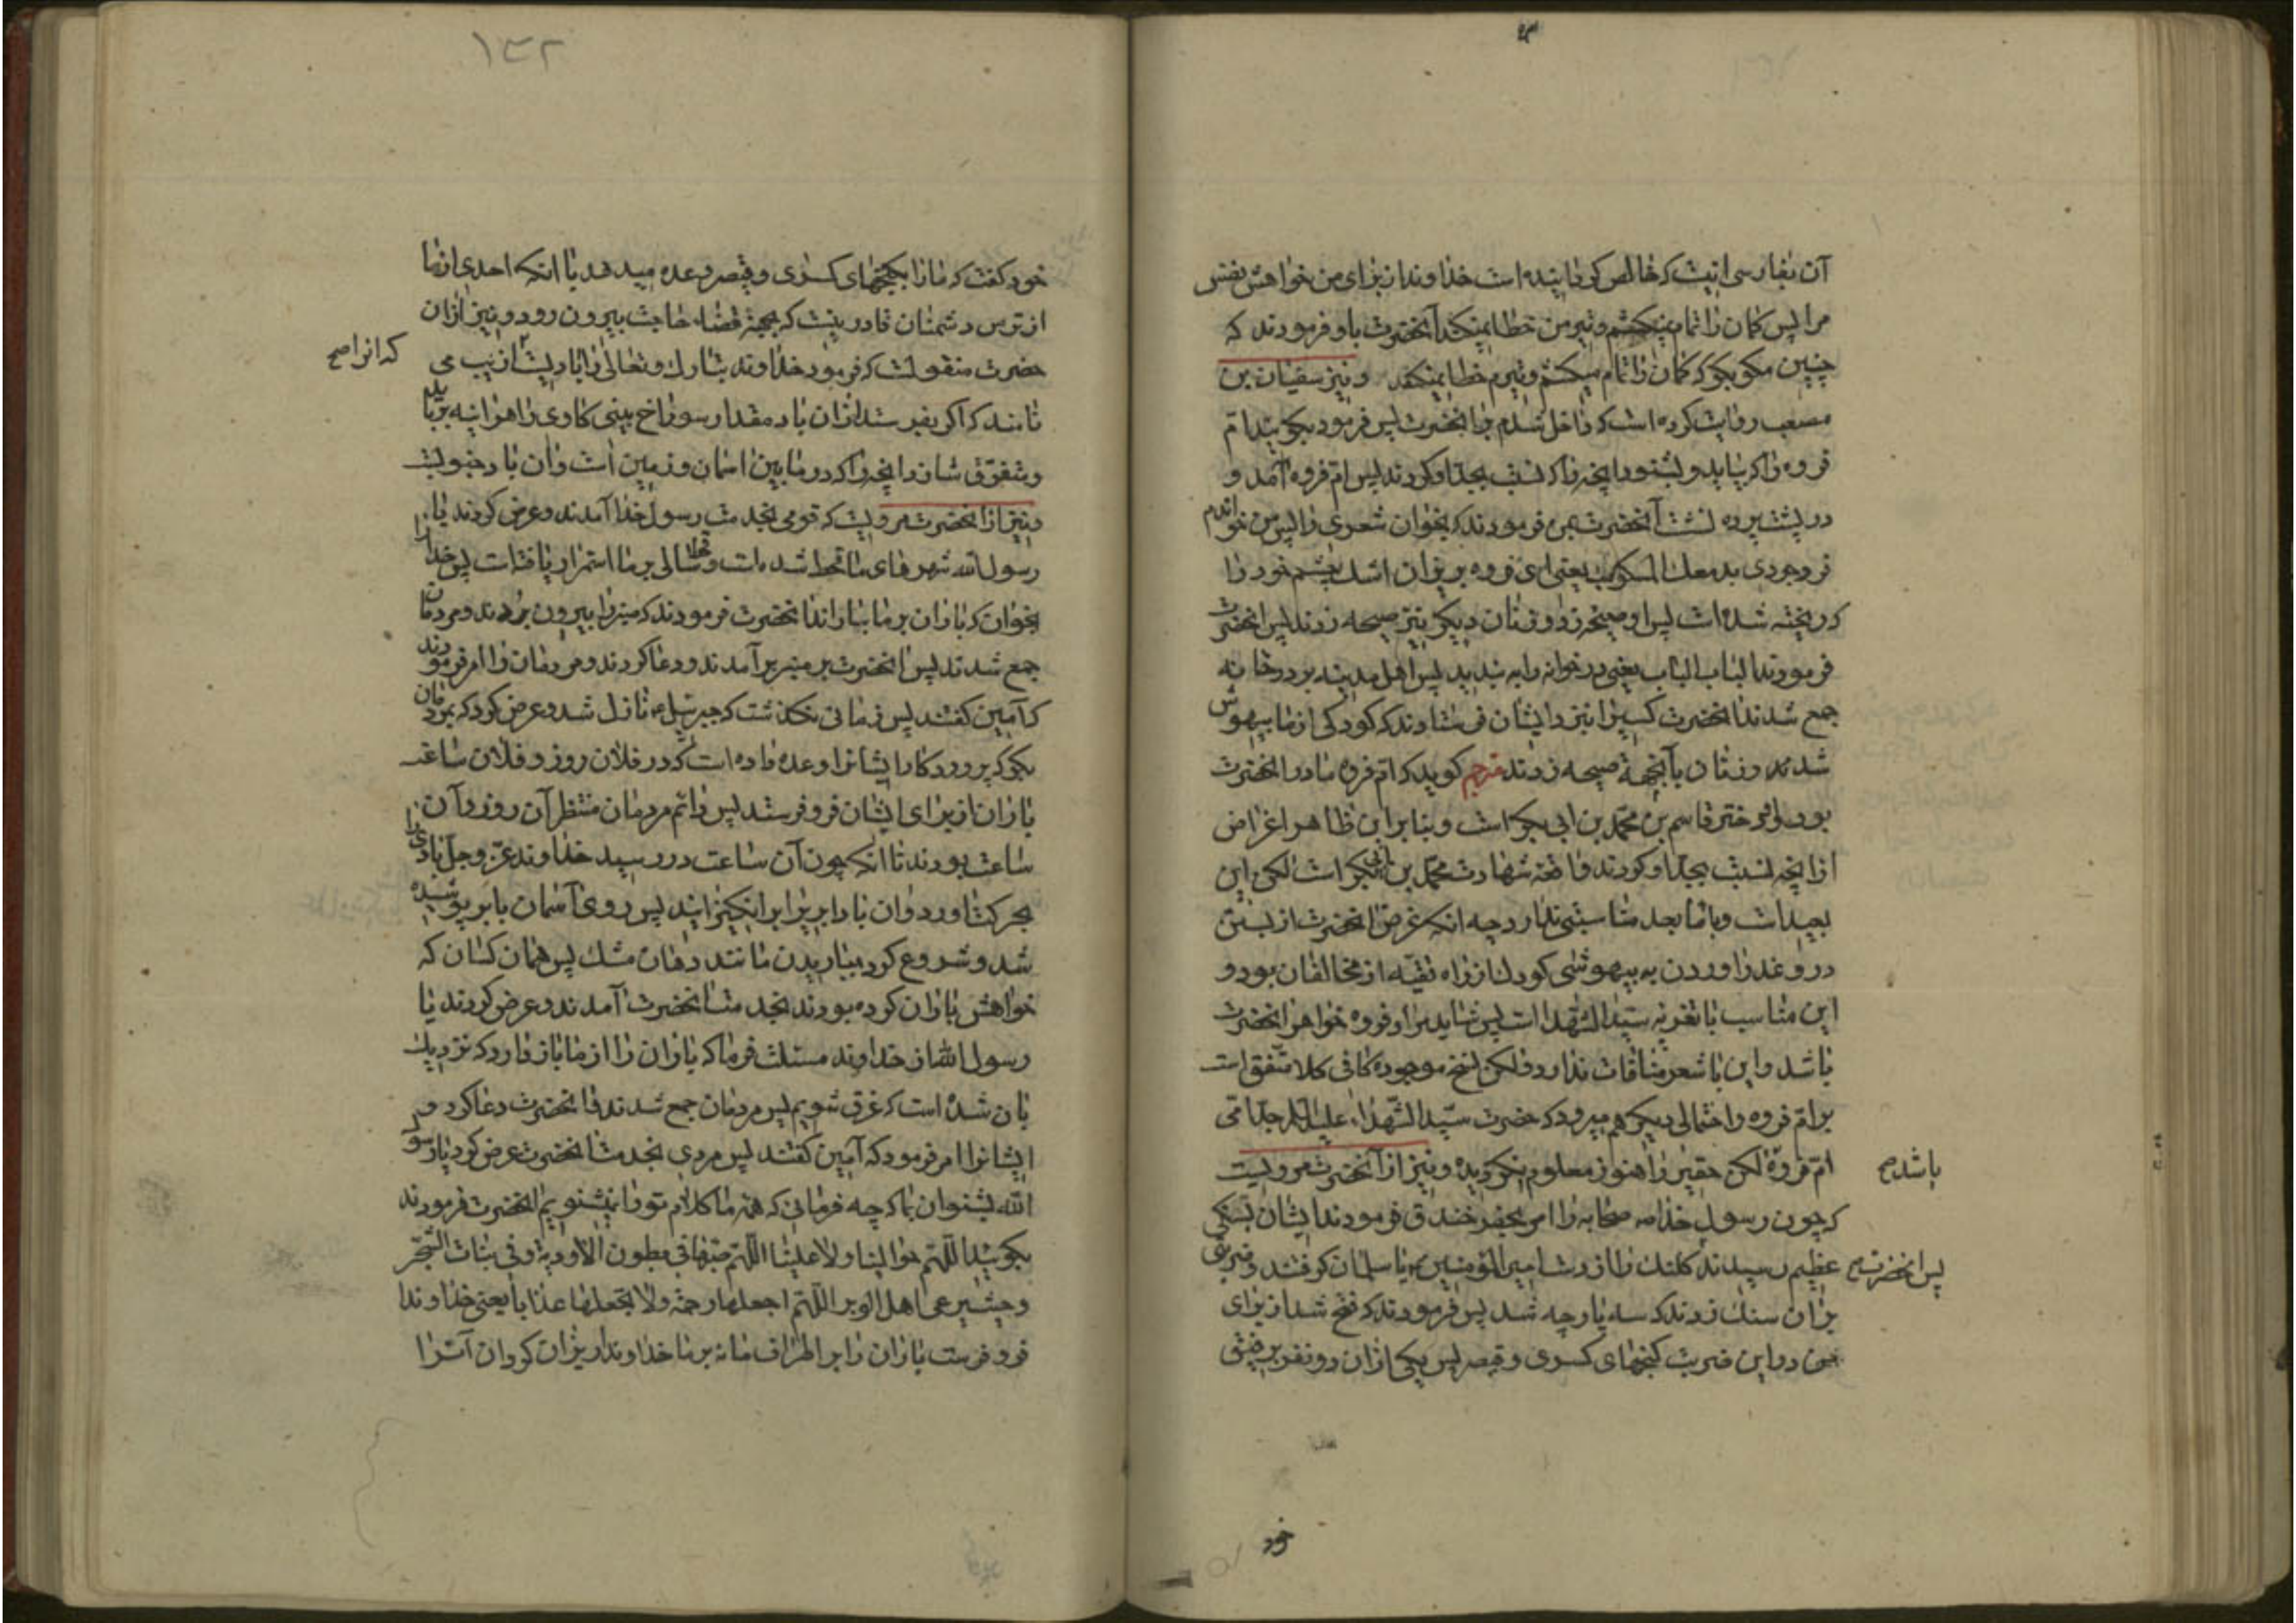 آن بفارسی اینست که خالص کردانیده است خداوندا از برای من خواهش نفس
مرا پس کمان را تمام نمیکشم و تیر من خطا نمیکند آنحضرت باو فرمودند که
چنین مکو بکو که کمان را تمام میکشم و تیرم خطا نمیکند و نیز سفیان بن
مصعب روایت کرده است که داخل شدم بر آنحضرت پس فرمود بکوئید ام
فروه را که بیاید و بشنود آنچه را که نسبت بجد او کردند پس ام فروه آمد و
در پشت پرده نشست آنحضرت بمن فرمودند که بخوان شعری را پس من خواندم
فرو جودی بدمعك المسکوب یعنی ای فروه بریزان اشك چشم خود را
که ریخته شده است پس او صیحه زد و زنان دیکر نیز صیحه زدند پس آنحضرت
فرمودند الباب الباب یعنی در خوانه را به بندید پس اهل مدینه بر در خانه
جمع شدند آنحضرت کسیرا نیز د ایشان فرستادند که کودکی از ما بیهوش
شده و زنان بآنجهة صیحه زدند مترجم کوید که ام فروه مادر آنحضرت
بود و او دختر قاسم بن محمد بن ابی بکر است و بنا بر این ظاهرا غرض
از آنچه نسبت بجد او کردند واقعه شهادت محمد بن ابی بکر است لکن این
بعید است و با ما بعد مناسبتی ندارد چه انکه غرض آنحضرت از بستن
در و عذر اوردن به بیهوشی کودك از راه تقیه از مخالفان بود و
این مناسب با تعزیه سید الشهدا است پس شاید مراد فروه خواهر آنحضرت
باشد و این با شعر منافات ندارد ولکن نسخ موجوده کافی کلا متفق است
بر ام فروه و احتمالی دیکر هم میرود که حضرت سید الشهداء علیه السلام جد امی
ام فروه باشد صح لکن حقیر را هنوز معلوم نکردیده و نیز از آنحضرت مرویست
که چون رسول خدا صحابه را امر بحفر خندق فرمودند ایشان بسنکی
عظیم رسیدند پس آنحضرت صح کلنك را از دست امیر المؤمنین یا سلمان کرفتند و ضربتی
بر ان سنك زدند که سه پارچه شد پس فرمودند که فتح شد از برای
من در این ضربت کنجهای کسری و قیصر پس یکی از ان دو نفر برفیق
خود
۱۳۲
خود کفت که ما را بکنجهای کسری و قیصر وعده میدهد با انکه احدی از ما
از ترس دشمنان قادر نیست که بجهة قضاء حاجت بیرون رود و نیز از ان
حضرت منقولست که فرمود خداوند تبارك و تعالی را بادیست که انرا صح ازیب می
نامند که اکر بفرستد از ان باد مقدار سوراخ بینی کاوی را هر اینه بر باید
و متفرق سازد آنچه را که در مابین اسمان و زمین است و ان باد جنوبست
و نیز از آنحضرت مرویست که قومی بخدمت رسول خدا آمدند و عرض کردند یا
رسول الله شهرهای ما قحط شده است و قحط سالی بر ما استمرار یافته است پس خدا را
بخوان که باران بر ما بباراند آنحضرت فرمودند که منبر را بیرون بردند و مردمان
جمع شدند پس آنحضرت بر منبر بر آمدند و دعا کردند و مردمان را امر فرمودند
که آمین کفتند پس زمانی نکذشت که جبرئیل نازل شد و عرض کرد که بمردمان
بکو که پروردکار ایشانرا وعده داده است که در فلان روز و فلان ساعت
باران از برای ایشان فرو فرستد پس دائم مردمان منتظر آن روز و آن
ساعت بودند تا انکه چون آن ساعت در رسید خداوند عز و جل بادی را
بحرکت اورد و ان باد ابر را بر انکیزانید پس روی آسمان بابر پوشیده
شد و شروع کرد بباریدن مانند دهان مشك پس همان کسان که
خواهش باران کرده بودند بخدمت آنحضرت آمدند و عرض کردند یا
رسول الله از خداوند مسئلت فرما که باران را از ما باز دارد که نزدیك
بان شده است که غرق شویم پس مردمان جمع شدند و آنحضرت دعا کرد و
ایشانرا امر فرمود که آمین کفتند پس مردی بخدمت آنحضرت عرض کرد یا رسول
الله بشنوان بما که چه فرمائی که همه ما کلام تو را نمیشنویم آنحضرت فرمودند
بکوئید اللهم حوالینا ولا علینا اللهم صبها فی بطون الاودیة و فی نبات الشجر
و حیث یرعی اهل الوبر اللهم اجعلها رحمة ولا تجعلها عذابا یعنی خداوندا
فرو فرست باران را بر اطراف ما نه بر ما خداوندا ریزان کردان آنرا